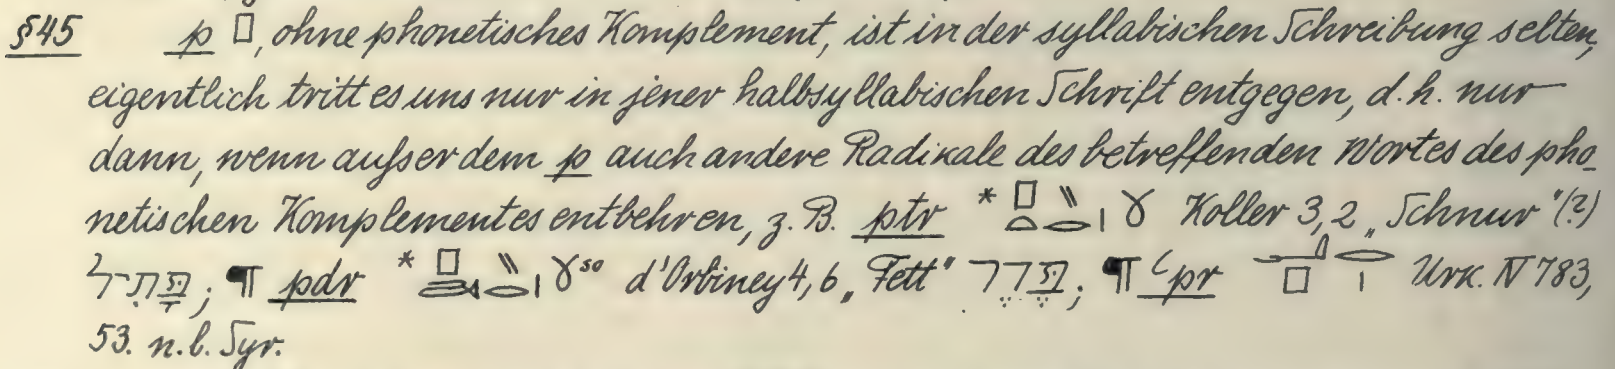 §45 p 𓊪, ohne phonetisches Komplement, ist in der syllabischen Schreibung selten,
eigentlich tritt es uns nur in jener halbsyllabischen Schrift entgegen, d.h. nur
dann, wenn außer dem p auch andere Radikale des betreffenden Wortes des pho-
netischen Komplementes entbehren, z.B. ptr * Koller 3,2 „Schnur“(?)
¶ pdr * so d'Orbiney 4,6 „Fett“ ; ¶ ʿpr Urk. IV 783,
53. n.l. Syr.